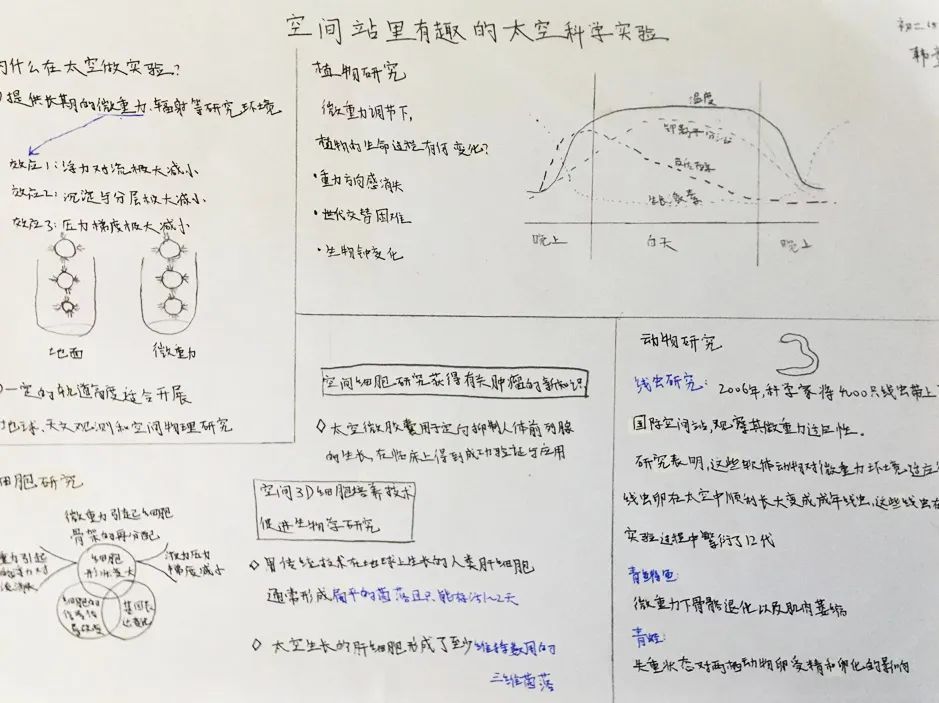 空间站里有趣的太空科学实验
初二
韩
为什么在太空做实验?
提供长期的微重力、辐射等研究环境
效应1:浮力对流极大减小
效应2:沉淀与分层极大减小
效应3:压力梯度极大减小
地面
微重力
一定的轨道高度适合开展
地球、天文观测和空间物理研究
植物研究
微重力调节下,
植物的生命过程有何变化?
·重力方向感消失
·世代交替困难
·生物钟变化
温度
生长激素
晚上
白天
晚上
细胞研究
微重力引起细胞
骨架的再分配
重力引起
微压力
梯度减小
细胞
形状变大
空间细胞研究获得有关肿瘤的新知识
◇ 太空微胶囊用于定向抑制人体前列腺
的生长,在临床上得到成功验证与应用
空间3D细胞培养技术
促进生物学研究
◇ 冒传统技术在地球上生长的人类肝细胞
通常形成扁平的菌落且只能存活1~2天
◇ 太空生长的肝细胞形成了至少维持数周的
三维菌落
动物研究
线虫研究:2006年,科学家将4000只线虫带上
国际空间站,观察其微重力适应性。
研究表明,这些软体动物对微重力环境适应
线虫卵在太空中顺利长大变成成年线虫,这些线虫在
实验过程中繁衍了12代
青鳉鱼:
微重力下骨骼退化以及肌肉萎缩
青蛙:
失重状态对两栖动物卵受精和卵化的影响